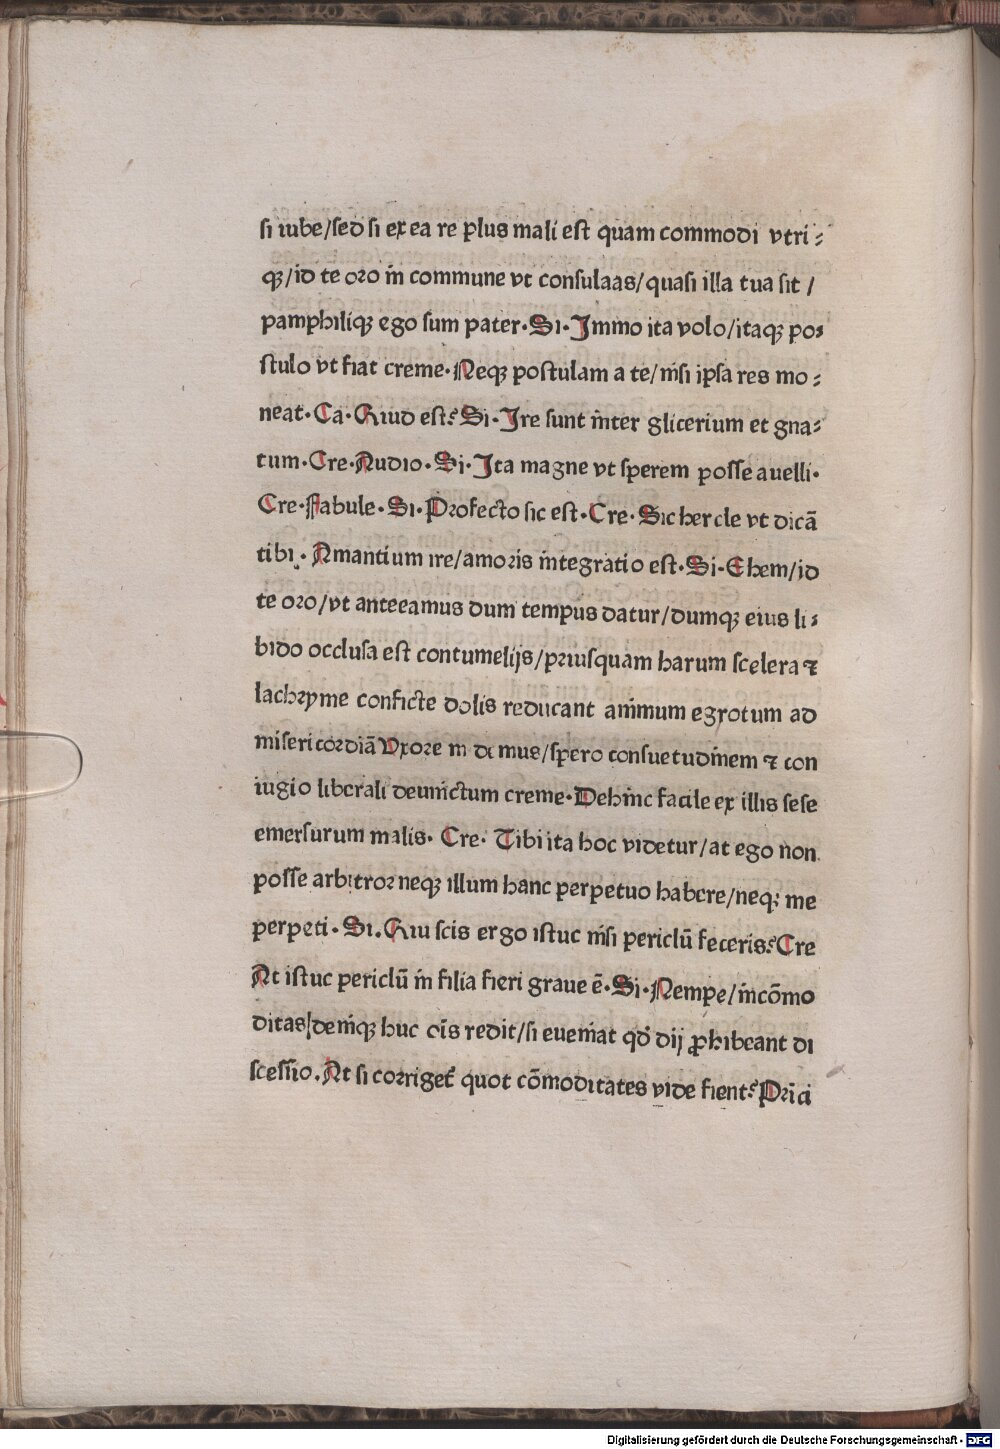 si iube/sed si ex ea re plus mali est quam commodi vtri⸗
qꝫ/id te oro in commune vt consulaas/quasi illa tua sit/
pamphiliqꝫ ego sum pater·Si·Immo ita volo/itaqꝫ po⸗
stulo vt fiat creme·Neqꝫ postulam a te/nisi ipsa res mo⸗
neat·Ca·Quid est? Si·Ire sunt inter glicerium et gna⸗
tum·Cre·Audio·Si·Ita magne vt sperem posse auelli·
Cre·Fabule·Si·Profecto sic est·Cre·Sic hercle vt dicā
tibi·Amantium ire/amoris integratio est·Si·Ehem/id
te oro/vt anteeamus dum tempus datur/dumqꝫ eius li⸗
bido occlusa est contumelijs/priusquam harum scelera ⁊
lachryme conficte dolis reducant animum egrotum ad
misericordiā Vxore m de mus/spero consuetudinem ⁊ con
iugio liberali deuinctum creme·Dehinc facile ex illis sese
emersurum malis·Cre·Tibi ita hoc videtur/at ego non
posse arbitror neqꝫ illum hanc perpetuo habere/neqꝫ me
perpeti·Si·Qiu scis ergo istuc nisi periclū feceris? Cre
At istuc periclū in filia fieri graue ē·Si·Nempe/incōmo
ditas/deniqꝫ huc oīs redit/si eueniat qđ dij ꝓhibeant di
scessio·At si corriget᷑ quot cōmoditates vide fient? Prīci
Digitalisierung gefördert durch die Deutsche Forschungsgemeinschaft - DFG